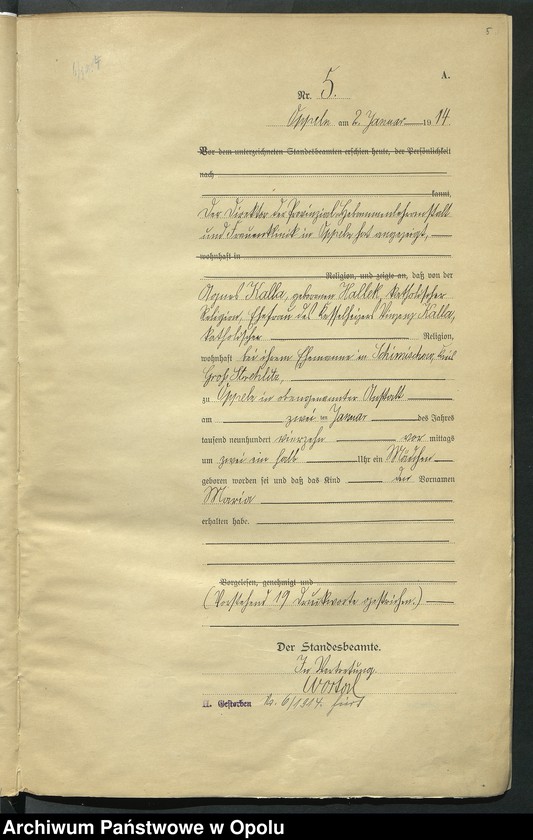 5
A.
Nr. 5.
Oppeln am 2. Januar 1914
Vor dem unterzeichneten Standesbeamten erschien heute, der Persönlichkeit
nach
kannt,
Der Direktor der Provinzial-Hebammenlehranstalt
und Frauenklinik in Oppeln hat angezeigt,
wohnhaft in
Religion, und zeigte an, daß von der
Agnes Kalla, geborenen Hallek, katholischer
Religion, Ehefrau des Kesselheizers Vinzenz Kalla,
katholischer Religion,
wohnhaft bei ihrem Ehemanne in Schimischow, Kreis
Groß Strehlitz,
zu Oppeln in obengenannter Anstalt
am zwei ten Januar des Jahres
tausend neunhundert vierzehn vor mittags
um zwei ein halb Uhr ein Mädchen
geboren worden sei und daß das Kind den Vornamen
Maria
erhalten habe.
Vorgelesen, genehmigt und
(Vorstehend 19 Druckworte gestrichen.)
Der Standesbeamte.
In Vertretung
Gestorben Nr. 6/1914. hier
Archiwum Państwowe w Opolu